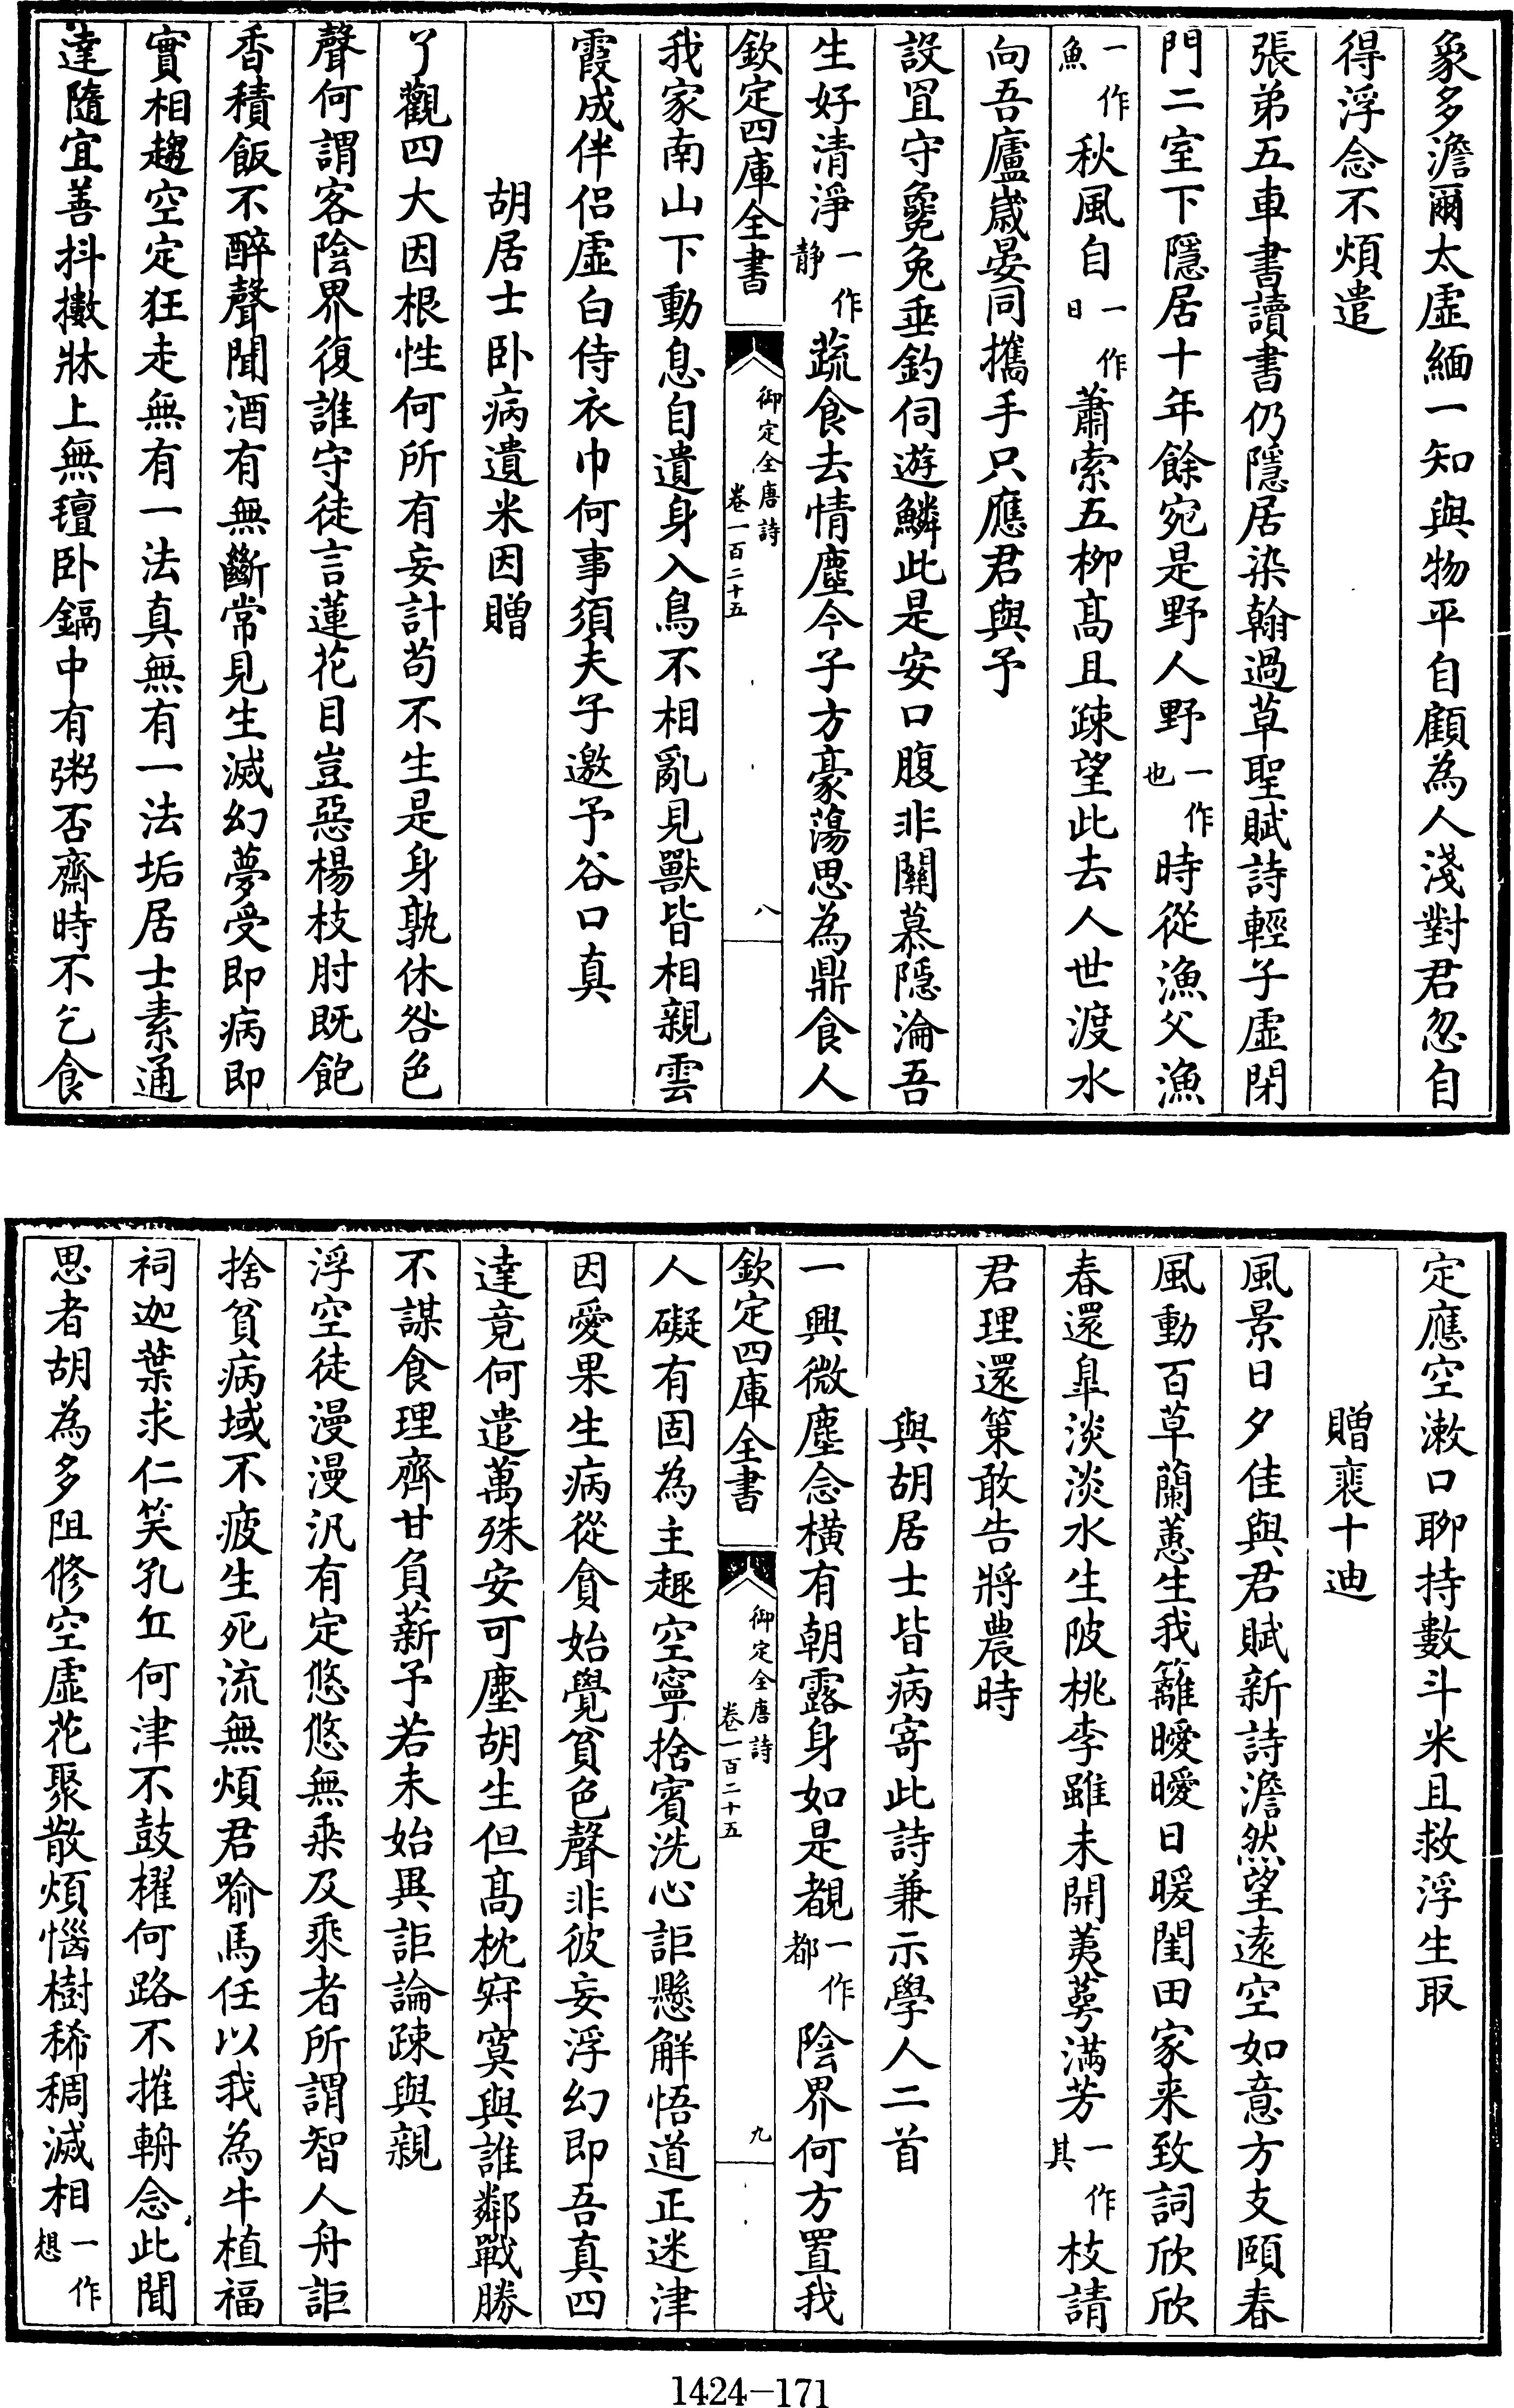 象多澹爾太虛緬一知與物平自顧為人淺對君忽自
得浮念不煩遣
張弟五車書讀書仍隱居染翰過草聖賦詩輕子虛閉
門二室下隱居十年餘宛是野人野一作也時從漁父漁
一作魚秋風自一作日蕭索五柳髙且疎望此去人世渡水
向吾廬嵗晏同攜手只應君與予
設罝守毚兔垂釣伺遊鱗此是安口腹非關慕隱淪吾
生好清淨一作静蔬食去情塵今子方豪蕩思為鼎食人
欽定四庫全書 御定全唐詩 卷一百二十五 八
我家南山下動息自遺身入鳥不相亂見獸皆相親雲
霞成伴侣虛白侍衣巾何事須夫子邀予谷口真
胡居士卧病遺米因贈
了觀四大因根性何所有妄計苟不生是身孰休咎色
聲何謂客陰界復誰守徒言蓮花目豈惡楊枝肘既飽
香積飯不醉聲聞酒有無斷常見生滅幻夢受即病即
實相趨空定狂走無有一法真無有一法垢居士素通
達隨宜善抖擻牀上無氊卧鎘中有粥否齋時不乞食
定應空漱口聊持數斗米且救浮生取
贈裵十迪
風景日夕佳與君賦新詩澹然望遠空如意方支頤春
風動百草蘭蕙生我籬曖曖日暖閨田家来致詞欣欣
春還臯淡淡水生陂桃李雖未開荑蕚滿芳一作其枝請
君理還策敢告將農時
與胡居士皆病寄此詩兼示學人二首
一興微塵念橫有朝露身如是覩一作都陰界何方置我
欽定四庫全書 御定全唐詩 卷一百二十五 九
人礙有固為主趣空寧捨賓洗心詎懸解悟道正迷津
因愛果生病從貪始覺貧色聲非彼妄浮幻即吾真四
達竟何遣萬殊安可塵胡生但髙枕寂寞與誰鄰戰勝
不謀食理齊甘負薪予若未始異詎論疎與親
浮空徒漫漫汎有定悠悠無乗及乗者所謂智人舟詎
捨貧病域不疲生死流無煩君喻馬任以我為牛植福
祠迦葉求仁笑孔丘何津不鼓櫂何路不摧輈念此聞
思者胡為多阻修空虛花聚散煩惱樹稀稠滅相一作想
1424-171